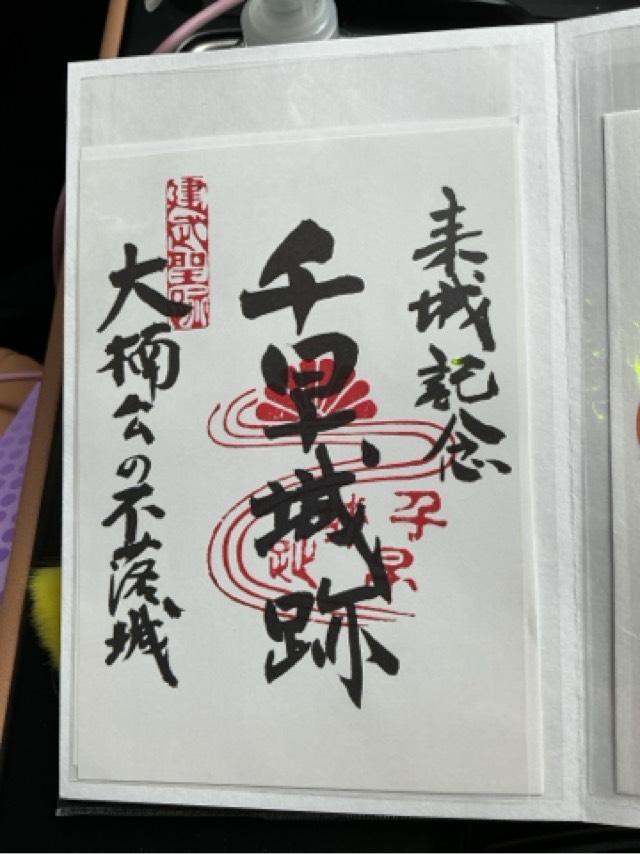 来城記念
千早城跡
千早
城跡
建武聖跡
大楠公の不落城